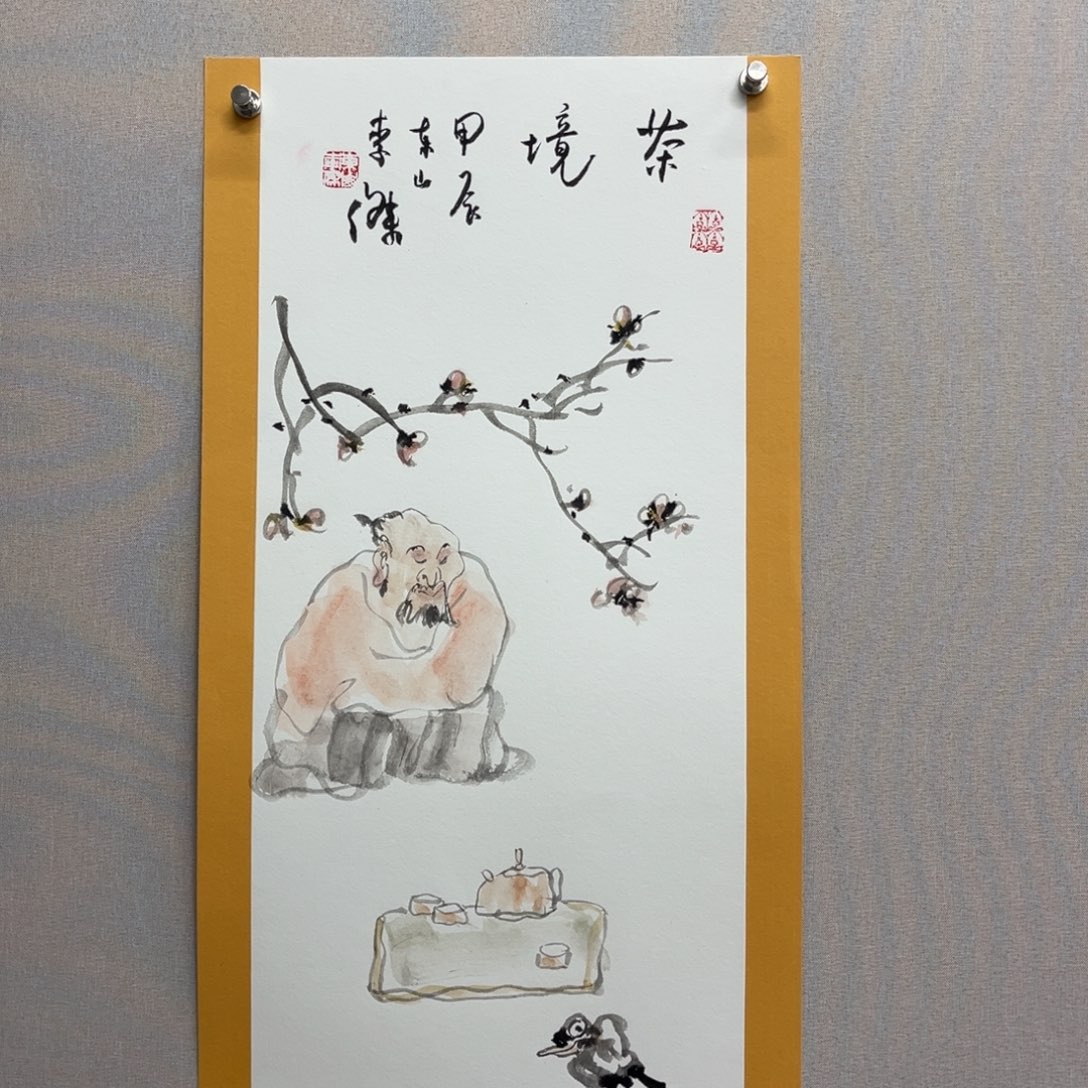 茶境
甲辰
东山
李傑